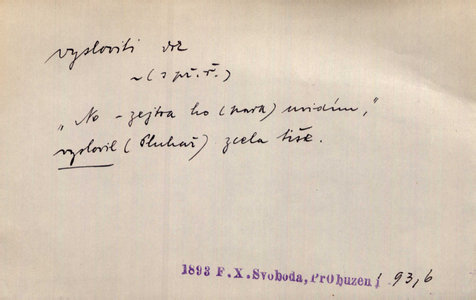 vysloviti
~ (s př. ř.)
„No – zejtra ho (pana) uvidím,"
vyslovil (Pluhař) zcela tiše.
1893 F.X.Svoboda, Probuzení 93,6